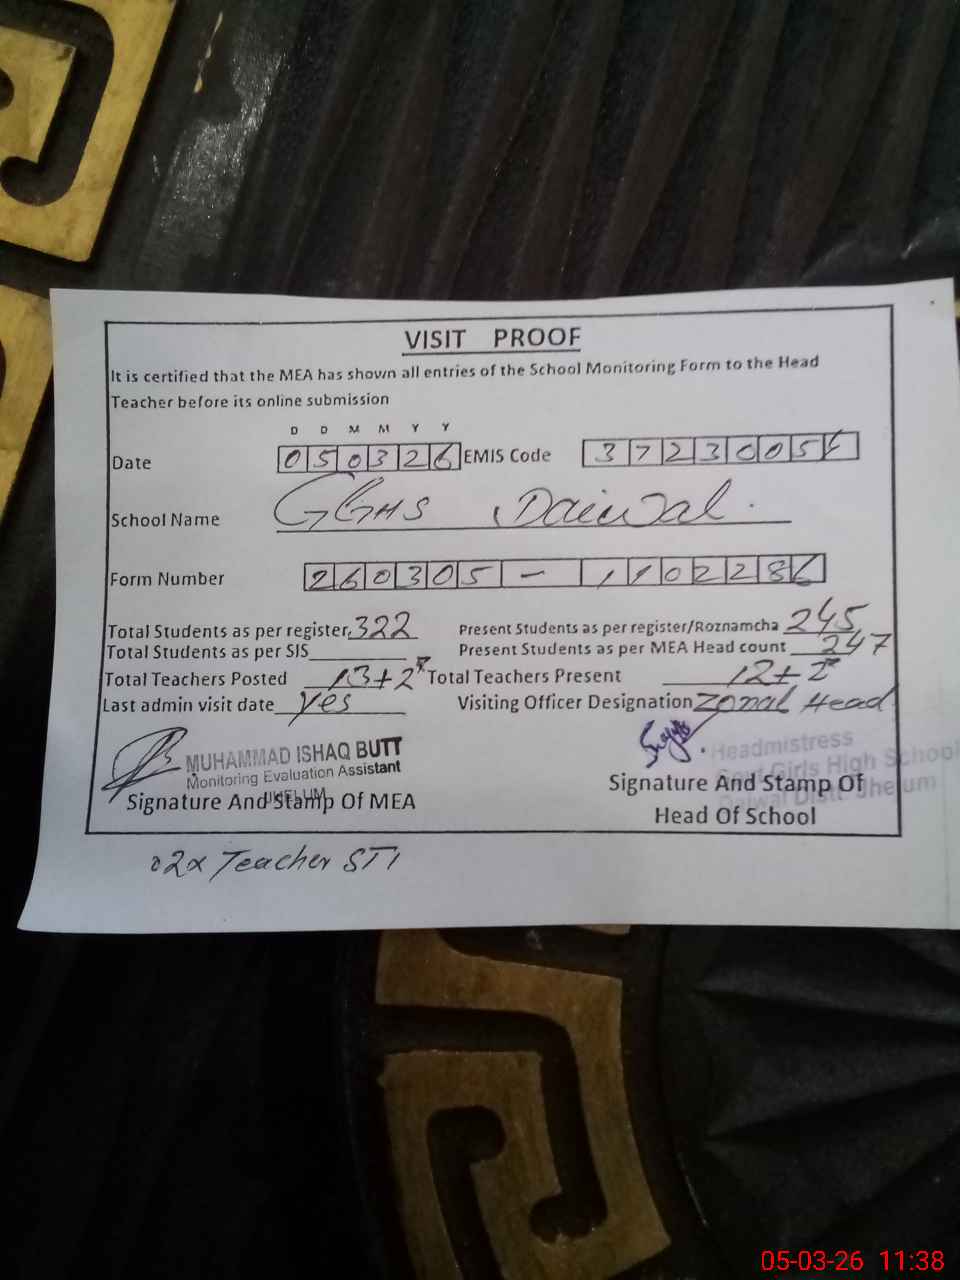 VISIT PROOF
It is certified that the MEA has shown all entries of the School Monitoring Form to the Head
Teacher before its online submission
D D M M Y Y
Date 050326 EMIS Code 3723005
School Name GGHS Daiwal.
Form Number 260305 - 1102286
Total Students as per register 322 Present Students as per register/Roznamcha 245
Total Students as per SIS Present Students as per MEA Head count 247
Total Teachers Posted 13+2* Total Teachers Present 12+2*
Last admin visit date yes Visiting Officer Designation Zonal Head
MUHAMMAD ISHAQ BUTT
Monitoring Evaluation Assistant
JHELUM
Signature And Stamp Of MEA
Headmistress
Govt Girls High School
Daiwal Distt. Jhelum
Signature And Stamp Of
Head Of School
02x Teacher STI
05-03-26 11:38